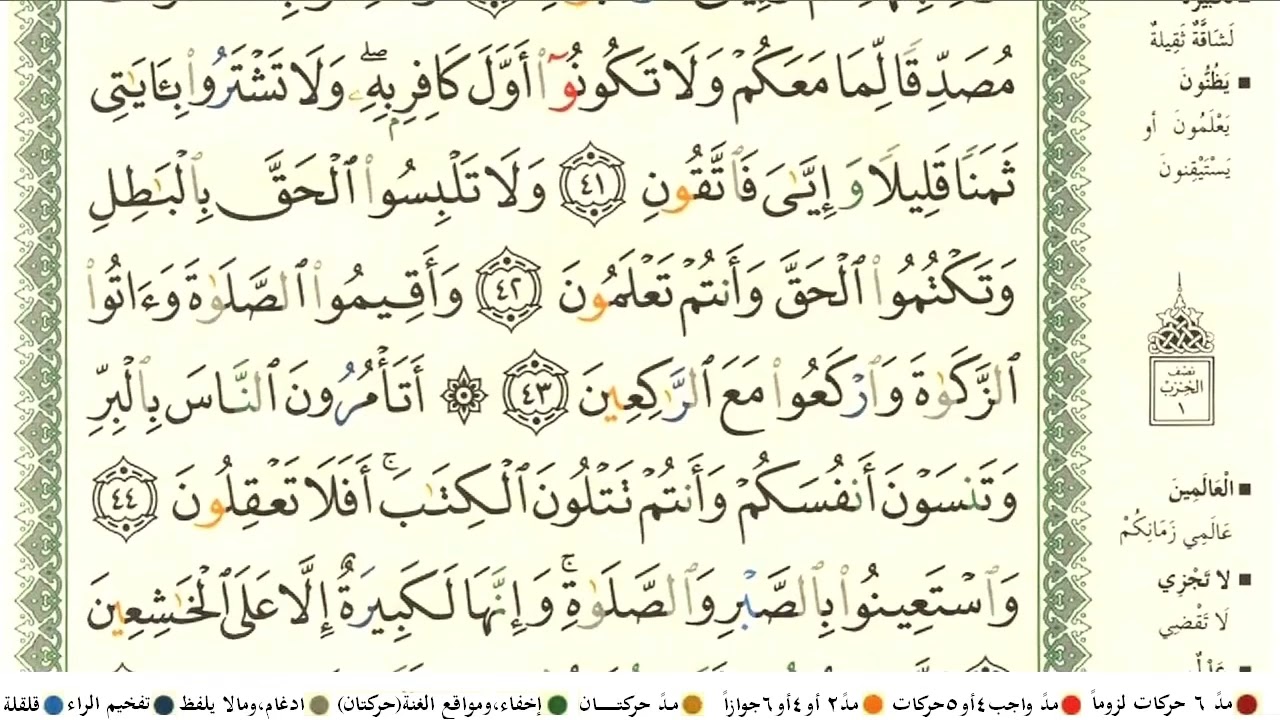 مُصَدِّقًا لِّمَا مَعَكُمْ وَلَا تَكُونُوٓا۟ أَوَّلَ كَافِرٍۭ بِهِۦ ۖ وَلَا تَشْتَرُوا۟ بِـَٔايَـٰتِى
ثَمَنًا قَلِيلًا وَإِيَّـٰىَ فَٱتَّقُونِ ٤١ وَلَا تَلْبِسُوا۟ ٱلْحَقَّ بِٱلْبَـٰطِلِ
وَتَكْتُمُوا۟ ٱلْحَقَّ وَأَنتُمْ تَعْلَمُونَ ٤٢ وَأَقِيمُوا۟ ٱلصَّلَوٰةَ وَءَاتُوا۟
ٱلزَّكَوٰةَ وَٱرْكَعُوا۟ مَعَ ٱلرَّٰكِعِينَ ٤٣ ۞ أَتَأْمُرُونَ ٱلنَّاسَ بِٱلْبِرِّ
وَتَنسَوْنَ أَنفُسَكُمْ وَأَنتُمْ تَتْلُونَ ٱلْكِتَـٰبَ ۚ أَفَلَا تَعْقِلُونَ ٤٤
وَٱسْتَعِينُوا۟ بِٱلصَّبْرِ وَٱلصَّلَوٰةِ ۚ وَإِنَّهَا لَكَبِيرَةٌ إِلَّا عَلَى ٱلْخَـٰشِعِينَ
لَشَاقَّةٌ ثَقِيلَةٌ
■ يَظُنُّونَ
يَعْلَمُونَ أو
يَسْتَيْقِنونَ
نصف
الحزب
١
■ الْعَالَمِينَ
عَالَمِي زَمَانِكُمْ
■ لا تَجْزِي
لَا تَقْضِي
مدّ ٦ حركات لزوماً مدّ واجب ٤ أو ٥ حركات مدّ ٢ أو ٤ أو ٦ جوازاً مدّ حركتـــان إخفاء، ومواقع الغنّة (حركتان) ادغام، ومالا يلفظ تفخيم الراء قلقلة